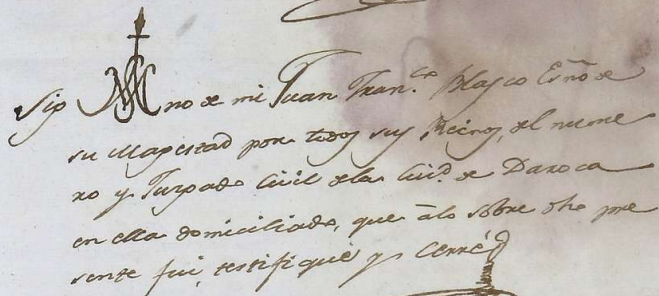 Sig no de mi Juan Fran.co Blasco Esño de
su Magestad por todos sus Reinos, del nume
ro y Juzgado Civil dela Ciud. de Daroca
en ella domiciliado, que âlo sobre dho pre
sente fui, testifiqué y cerré